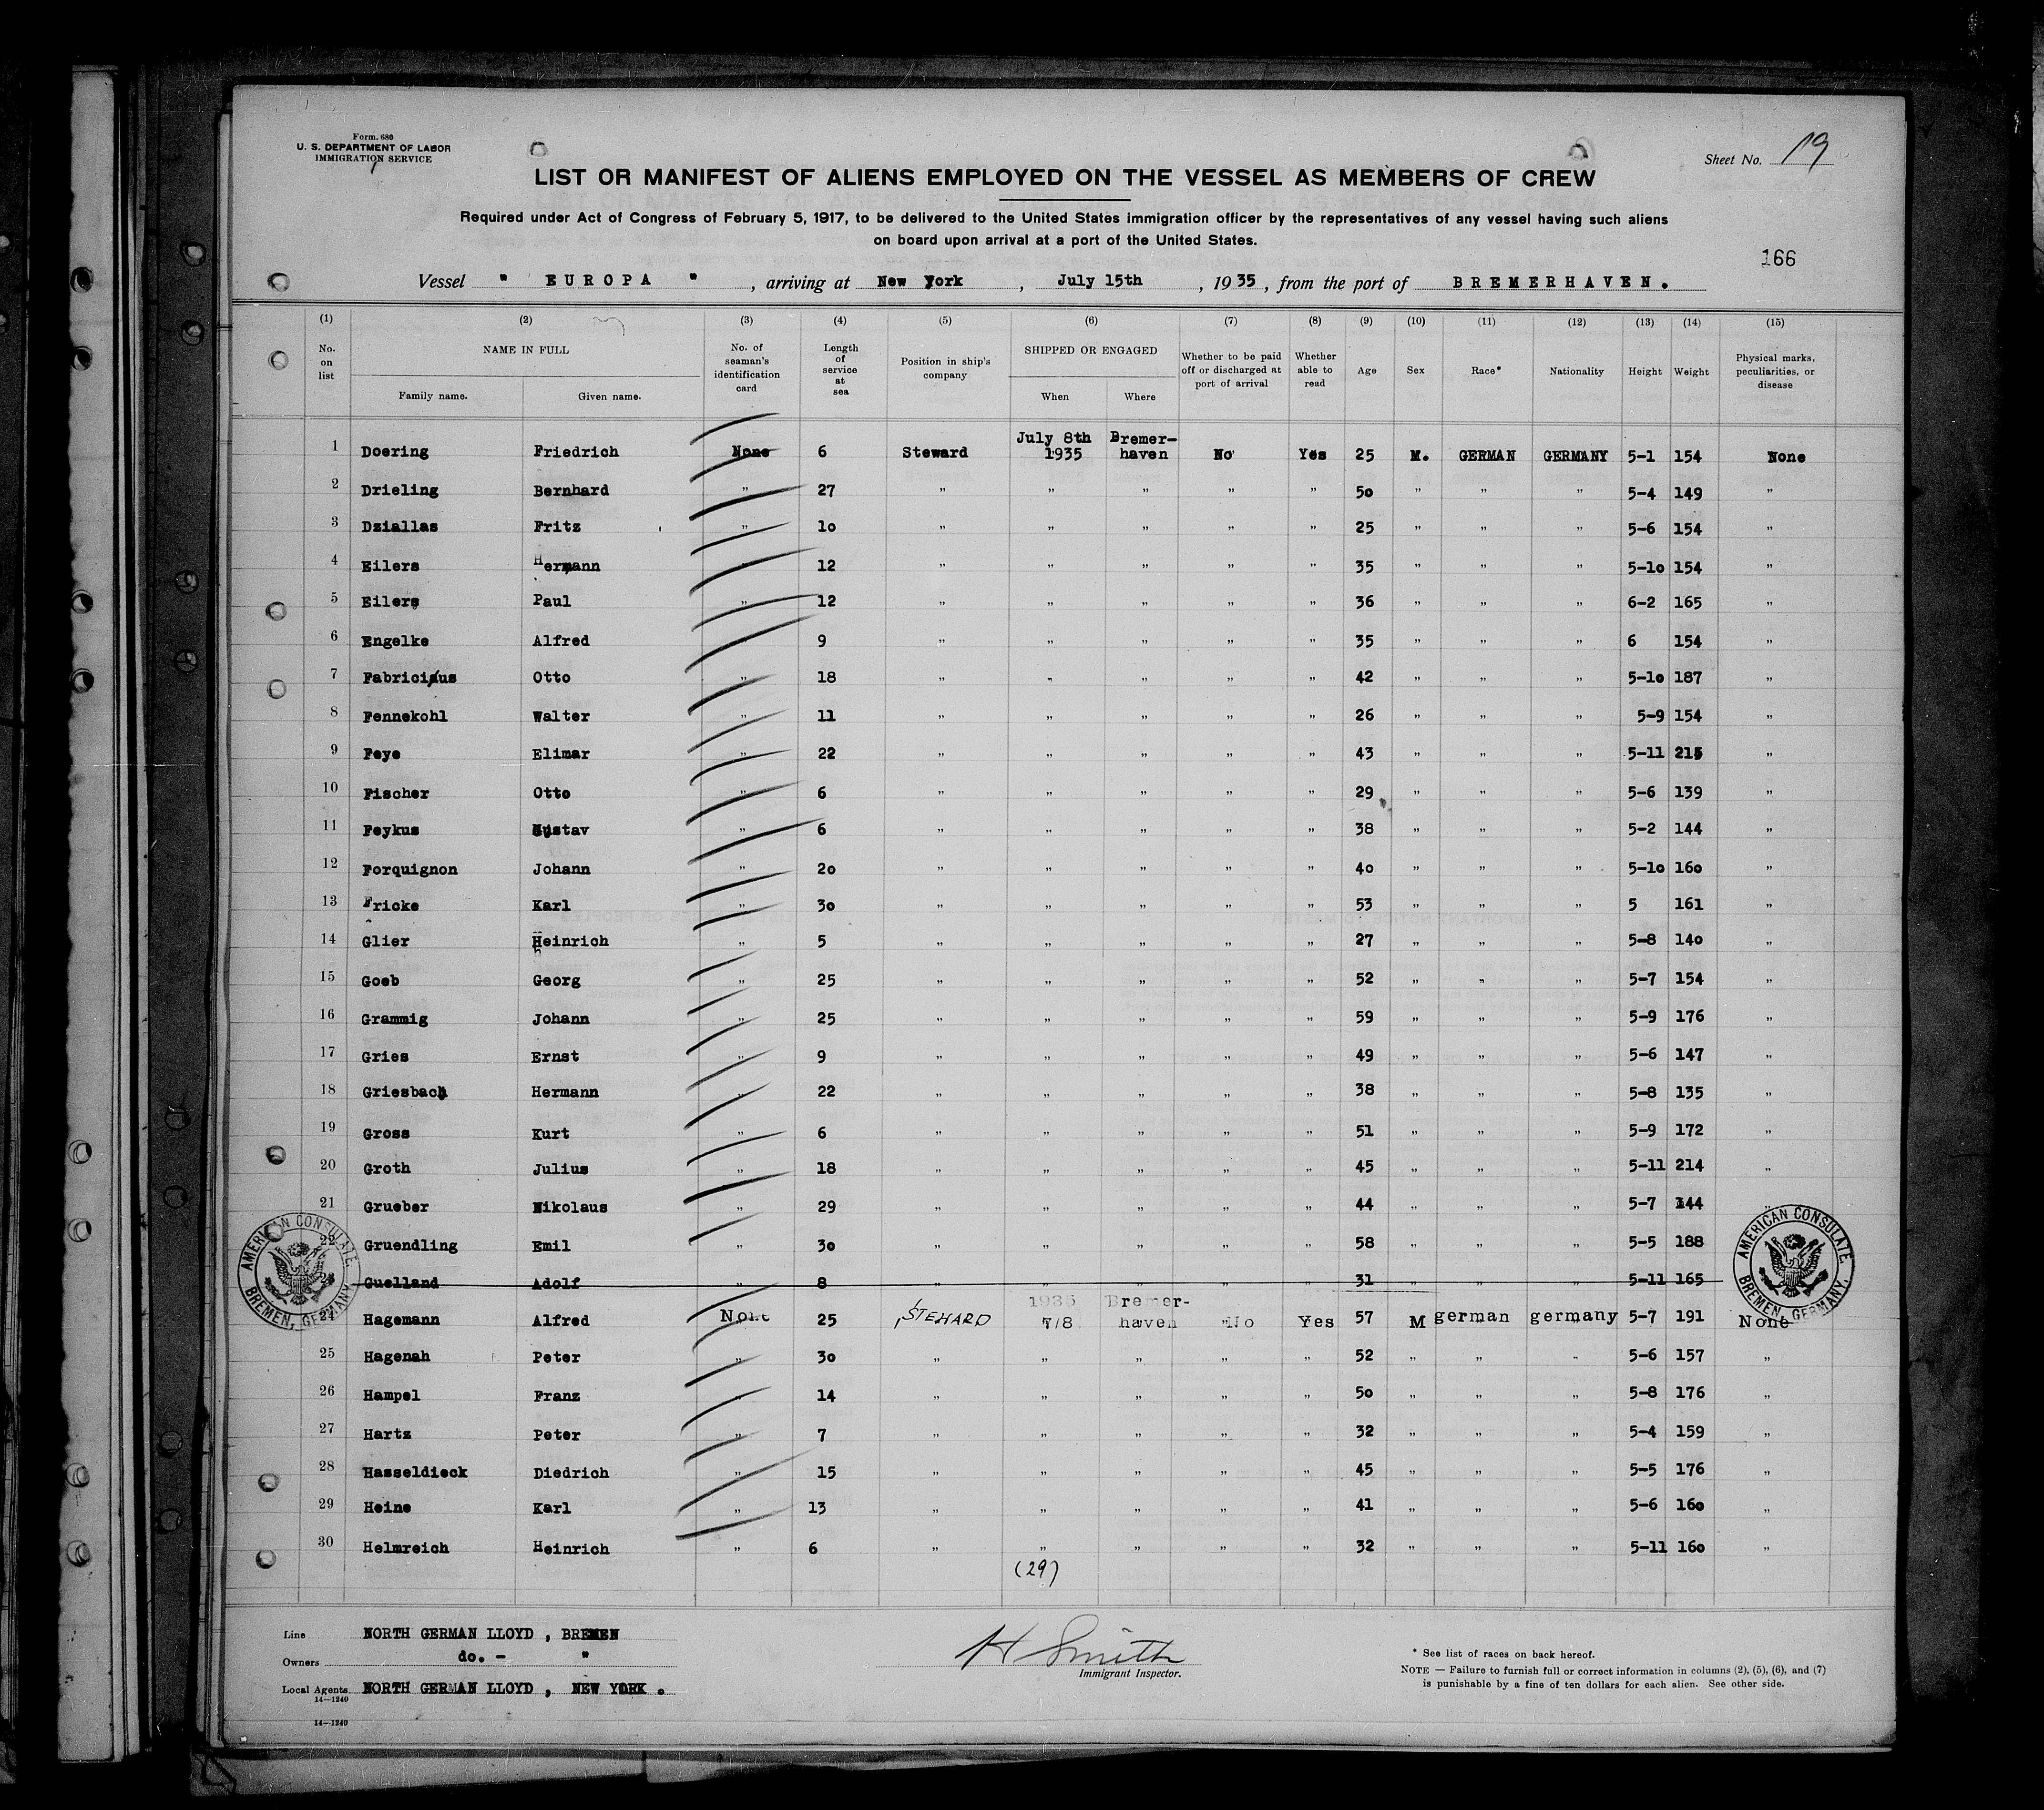 Form. 680
U. S. DEPARTMENT OF LABOR
IMMIGRATION SERVICE
Sheet No. 19
LIST OR MANIFEST OF ALIENS EMPLOYED ON THE VESSEL AS MEMBERS OF CREW
Required under Act of Congress of February 5, 1917, to be delivered to the United States immigration officer by the representatives of any vessel having such aliens
on board upon arrival at a port of the United States.
166
Vessel " EUROPA " , arriving at New York , July 15th , 1935 , from the port of BREMERHAVEN.
(1) (2) (3) (4) (5) (6) (7) (8) (9) (10) (11) (12) (13) (14) (15)
No. on list NAME IN FULL Family name. Given name. No. of seaman's identification card Length of service at sea Position in ship's company SHIPPED OR ENGAGED When Where Whether to be paid off or discharged at port of arrival Whether able to read Age Sex Race* Nationality Height Weight Physical marks, peculiarities, or disease
1 Doering Friedrich None 6 Steward July 8th 1935 Bremer-haven No Yes 25 M. GERMAN GERMANY 5-1 154 None
2 Drieling Bernhard " 27 " " " " " 50 " " " 5-4 149 "
3 Dziallas Fritz " 10 " " " " " 25 " " " 5-6 154 "
4 Eilers Hermann " 12 " " " " " 35 " " " 5-10 154 "
5 Eilers Paul " 12 " " " " " 36 " " " 6-2 165 "
6 Engelke Alfred " 9 " " " " " 35 " " " 6 154 "
7 Fabricius Otto " 18 " " " " " 42 " " " 5-10 187 "
8 Fennekohl Walter " 11 " " " " " 26 " " " 5-9 154 "
9 Feye Elimar " 22 " " " " " 43 " " " 5-11 215 "
10 Fischer Otto " 6 " " " " " 29 " " " 5-6 139 "
11 Feykus Gustav " 6 " " " " " 38 " " " 5-2 144 "
12 Forquignon Johann " 20 " " " " " 40 " " " 5-10 160 "
13 Fricke Karl " 30 " " " " " 53 " " " 5 161 "
14 Glier Heinrich " 5 " " " " " 27 " " " 5-8 140 "
15 Goeb Georg " 25 " " " " " 52 " " " 5-7 154 "
16 Grammig Johann " 25 " " " " " 59 " " " 5-9 176 "
17 Gries Ernst " 9 " " " " " 49 " " " 5-6 147 "
18 Griesbach Hermann " 22 " " " " " 38 " " " 5-8 135 "
19 Gross Kurt " 6 " " " " " 51 " " " 5-9 172 "
20 Groth Julius " 18 " " " " " 45 " " " 5-11 214 "
21 Grueber Nikolaus " 29 " " " " " 44 " " " 5-7 144 "
22 Gruendling Emil " 30 " " " " " 58 " " " 5-5 188 "
23 Guelland Adolf " 8 " " " " " 31 " " " 5-11 165
24 Hagemann Alfred None 25 STEWARD 1935 7/8 Bremer-haven No Yes 57 M german germany 5-7 191 None
25 Hagenah Peter " 30 " " " " " 52 " " " 5-6 157 "
26 Hampel Franz " 14 " " " " " 50 " " " 5-8 176 "
27 Hartz Peter " 7 " " " " " 32 " " " 5-4 159 "
28 Hasseldieck Diedrich " 15 " " " " " 45 " " " 5-5 176 "
29 Heine Karl " 13 " " " " " 41 " " " 5-6 160 "
30 Helmreich Heinrich " 6 " " " " " 32 " " " 5-11 160 "
(29)
AMERICAN CONSULATE BREMEN, GERMANY.
AMERICAN CONSULATE BREMEN, GERMANY.
Line NORTH GERMAN LLOYD , BREMEN
Owners do. - "
Local Agents NORTH GERMAN LLOYD , NEW YORK .
14—1240
14—1240
H Smith
Immigrant Inspector.
* See list of races on back hereof.
NOTE — Failure to furnish full or correct information in columns (2), (5), (6), and (7)
is punishable by a fine of ten dollars for each alien. See other side.